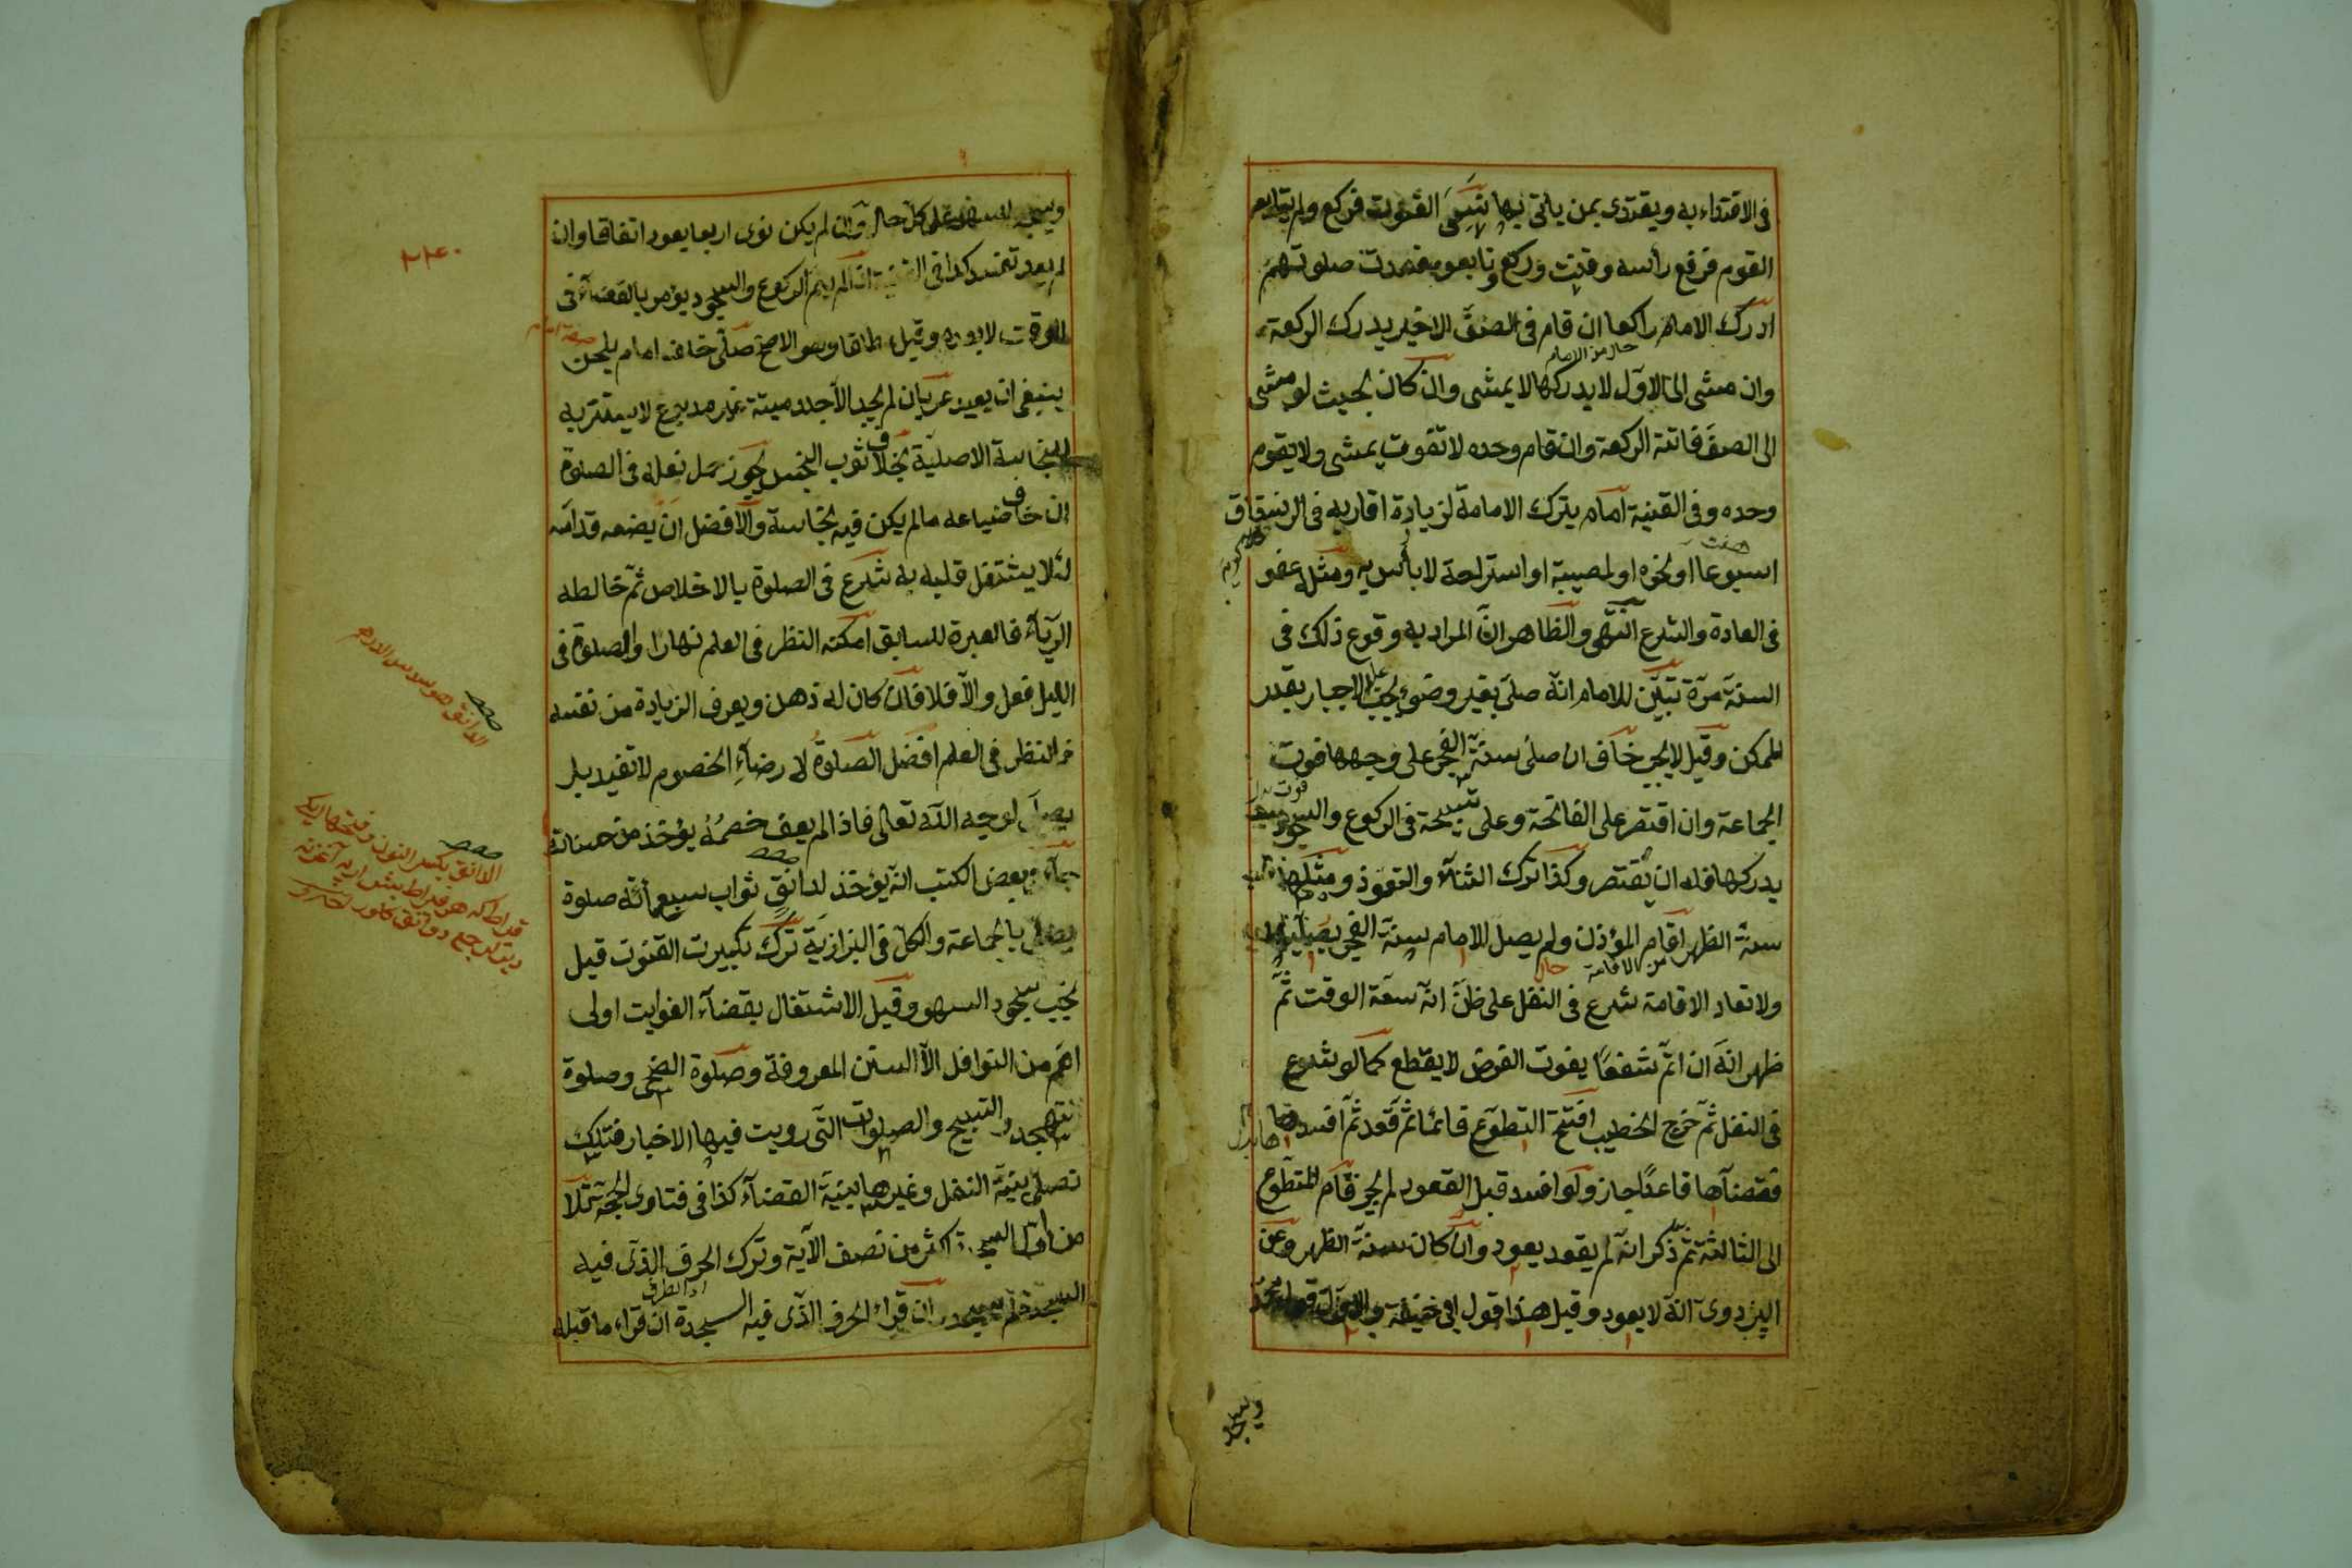 فى الاقتداء به ويقتدى بمن ياتى بها نسى القنوت فركع ولم يتابعه
القوم فرفع رأسه وقنت وركع وتابعوه فسدت صلوتهم
ادرك الامام راكعا ان قام فى الصف الاخير يدرك الركعة
حال من الامام
وان مشى الى الاول لا يدركها لا يمشى وان كان بحيث لو مشى
الى الصف فاتته الركعة وان قام وحده لا تفوت يمشى ولا يقوم
وحده وفى القنية امام يترك الامامة لزيارة اقاربه فى الرستاق
اسبوعا او نحوه او لمصيبة او استراحة لا بأس به ومثله عفو
فى العادة والشرع انتهى والظاهر ان المراد به وقوع ذلك فى
السنة مرة تبين للامام انه صلى بغير وضوء يجب عليه الاخبار بقدر
الممكن وقيل لا يجب خاف ان صلى سنة الفجر على وجهها فوت
الجماعة وان اقتصر على الفاتحة وعلى تسبيحة فى الركوع والسجود
يدركها فله ان يقتصر وكذا ترك الثناء والتعوذ ومثلها
سنة الظهر اقام المؤذن ولم يصل الامام سنة الفجر يصليها
من الاقامة
ولا تعاد الاقامة شرع فى النفل على ظن انه سعة الوقت ثم
ظهر انه ان اتم شفعا يفوت الفرض لا يقطع كما لو شرع
فى النفل ثم خرج الخطيب افتتح التطوع قائما ثم قعد ثم افسدها
فقضاها قاعدا جاز ولو افسد قبل القعود لم يجز قام المتطوع
الى الثالثة ثم ذكر انه لم يقعد يعود وان كان سنة الظهر وعن
البزدوى انه لا يعود وقيل هذا قول ابى حنيفة والاول قول محمد
ويسجد
ويسجد للسهو على كل حال وان لم يكن نوى اربعا يعود اتفاقا وان
لم يعد تفسد كذا فى القنية ان لم يتم الركوع والسجود يؤمر بالقضاء فى
الوقت لا بعده وقيل مطلقا وهو الاصح صلى خلف امام يلحن
ينبغى ان يعيد عريان لم يجد الا جلد ميتة غير مدبوغ لا يستتر به
للنجاسة الاصلية بخلاف ثوب النجس يجوز حمل نعله فى الصلوة
ان خاف ضياعه مالم يكن فيه نجاسة والافضل ان يضعه قدامه
لئلا يشتغل قلبه به شرع فى الصلوة بالاخلاص ثم خالطه
الرياء فالعبرة للسابق امكنه النظر فى العلم نهارا والصلوة فى
الليل فعل والا فلا فان كان له ذهن ويعرف الزيادة من نفسه
فالنظر فى العلم افضل الصلوة لارضاء الخصوم لا تفيد بل
يصلى لوجه الله تعالى فاذا لم يعف خصمه يؤخذ من حسناته
جاء فى بعض الكتب انه يؤخذ لدانق ثواب سبعمائة صلوة
بالجماعة والكل فى البزازية ترك تكبيرت القنوت قيل
يجب سجود السهو وقيل الاشتغال بقضاء الفوايت اولى
اهم من النوافل الا السنن المعروفة وصلوة الضحى وصلوة
التهجد والتسبيح والصلوات التى رويت فيها الاخبار فتلك
تصلى بنية النفل وغيرها بنية القضاء كذا فى فتاوى الحجة تلا
من اول السجدة اكثر من نصف الآية وترك الحرف الذى فيه
السجدة لم يسجد وان قراء الحرف الذى فيه السجدة ان قراء ما قبله
الدانق هو سدس الدرهم
الدانق بكسر النون وفتحها